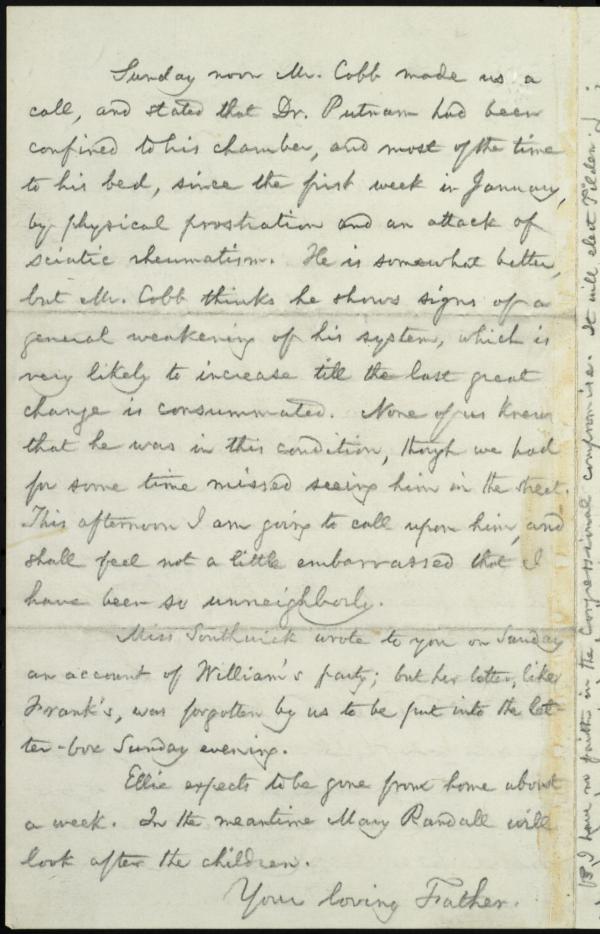 Sunday noon Mr. Cobb made us a
call, and stated that Dr. Putnam had been
confined to his chamber, and most of the time
to his bed, since the first week in January,
by physical prostration and an attack of
sciatic rheumatism. He is somewhat better,
but Mr. Cobb thinks he shows signs of a
general weakening of his system, which is
very likely to increase till the last great
change is consummated. None of us knew
that he was in this condition, though we had
for some time missed seeing him in the street.
This afternoon I am going to call upon him, and
shall feel not a little embarrassed that I
have been so unneighborly.
Miss Southwick wrote to you on Sunday
an account of William's party; but her letter, like
Frank's, was forgotten by us to be put into the let-
ter-box Sunday evening.
Ellie expects to be gone from home about
a week. In the meantime Mary Randall will
look after the children.
Your loving Father.
I have no faith in the Congressional compromise. It will elect Tilden.